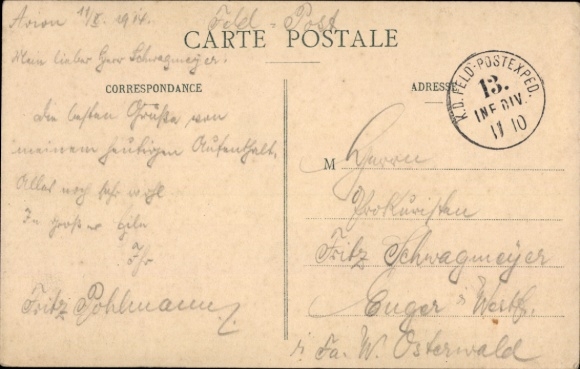 Feld - Post
CARTE POSTALE
Arlon 11/X. 1914.
Mein lieber Herr Schwagmeyer!
CORRESPONDANCE
Die besten Grüße von
meinem heutigen Aufenthalt.
Alles noch sehr wohl
In großer Eile
Ihr
Fritz Pohlmann
ADRESSE
K.D. FELD-POSTEXPED.
13.
INF. DIV.
11 10
M Herrn
Prokuristen
Fritz Schwagmeyer
Enger i/ Westf.
i/ Fa. W. Osterwald